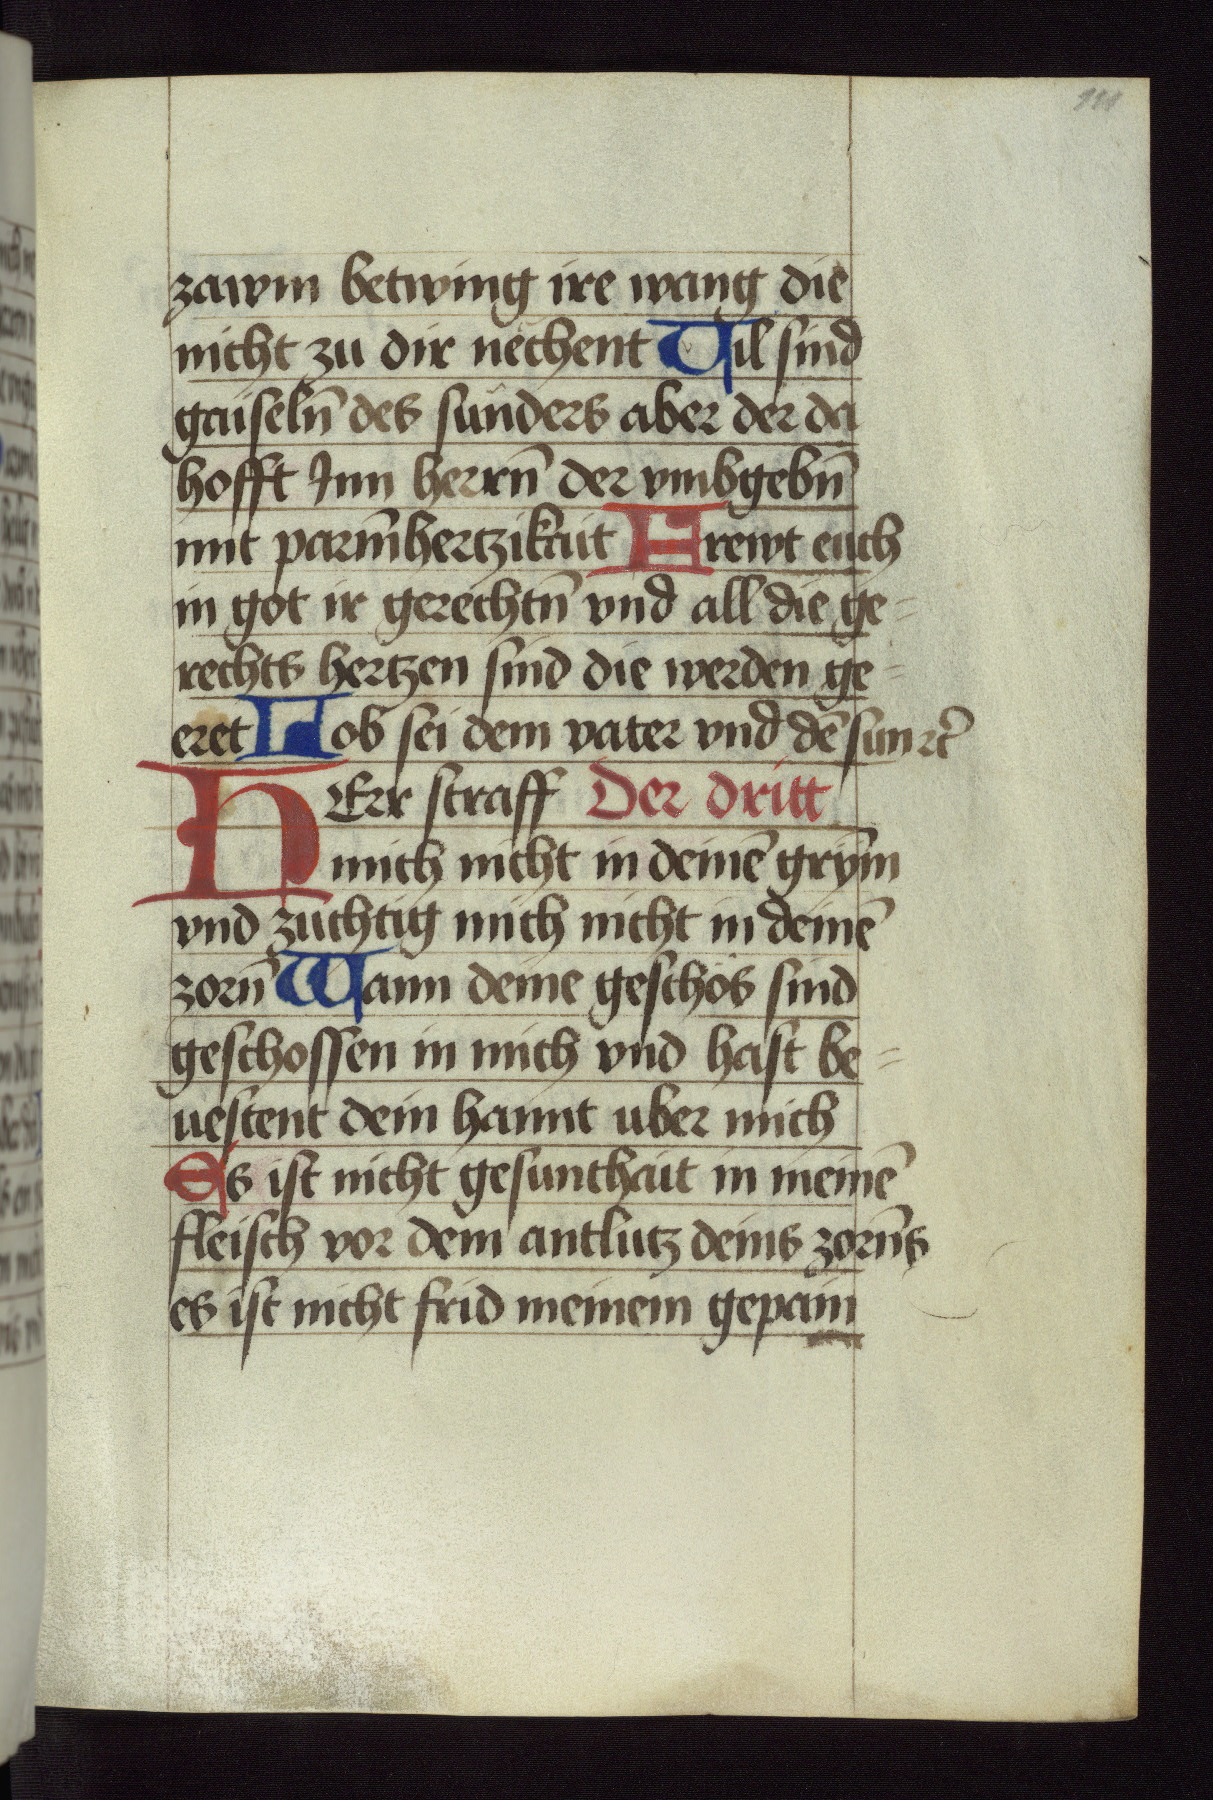 111
zawm betwing ire wang die
nicht zu dir nëchent Uil sind
gaiseln̄ des sünders aber der da
hofft Inn herrn̄ der vmbgebn̄
mit parm̄hertzikait Frewt euch
in got ir gerechtn̄ vnd all die ge=
rechts hertzen sind die werden ge=
eret Lob sei dem vater vnd dē sun ꝛc̄
HErr straff Der dritt
mich nicht in deinē grym̄
vnd züchtig mich nicht in deinē
zorn̄ Wann deine geschös sind
geschossen in mich vnd hast be=
uestent dein hannt uber mich
Es ist nicht gesunthait in meinē
fleisch vor dem antlutz deins zorn̄s
es ist nicht frid meinem gepain